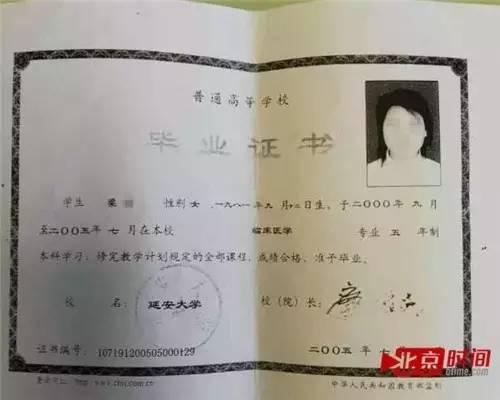 普通高等学校
毕业证书
学生 梁 性别 女 ,一九八一年九月十二日生、于二〇〇〇年 九月
至二〇〇五年 七月在本校 临床医学 专业 五 年制
本科学习，修完教学计划规定的全部课程，成绩合格，准予毕业。
校 名: 延安大学 校(院)长:
证书编号: 107191200505000129 二〇〇五年 七
北京时间
btime.com
查询网址: http://www.chsi.com.cn 中华人民共和国教育部监制